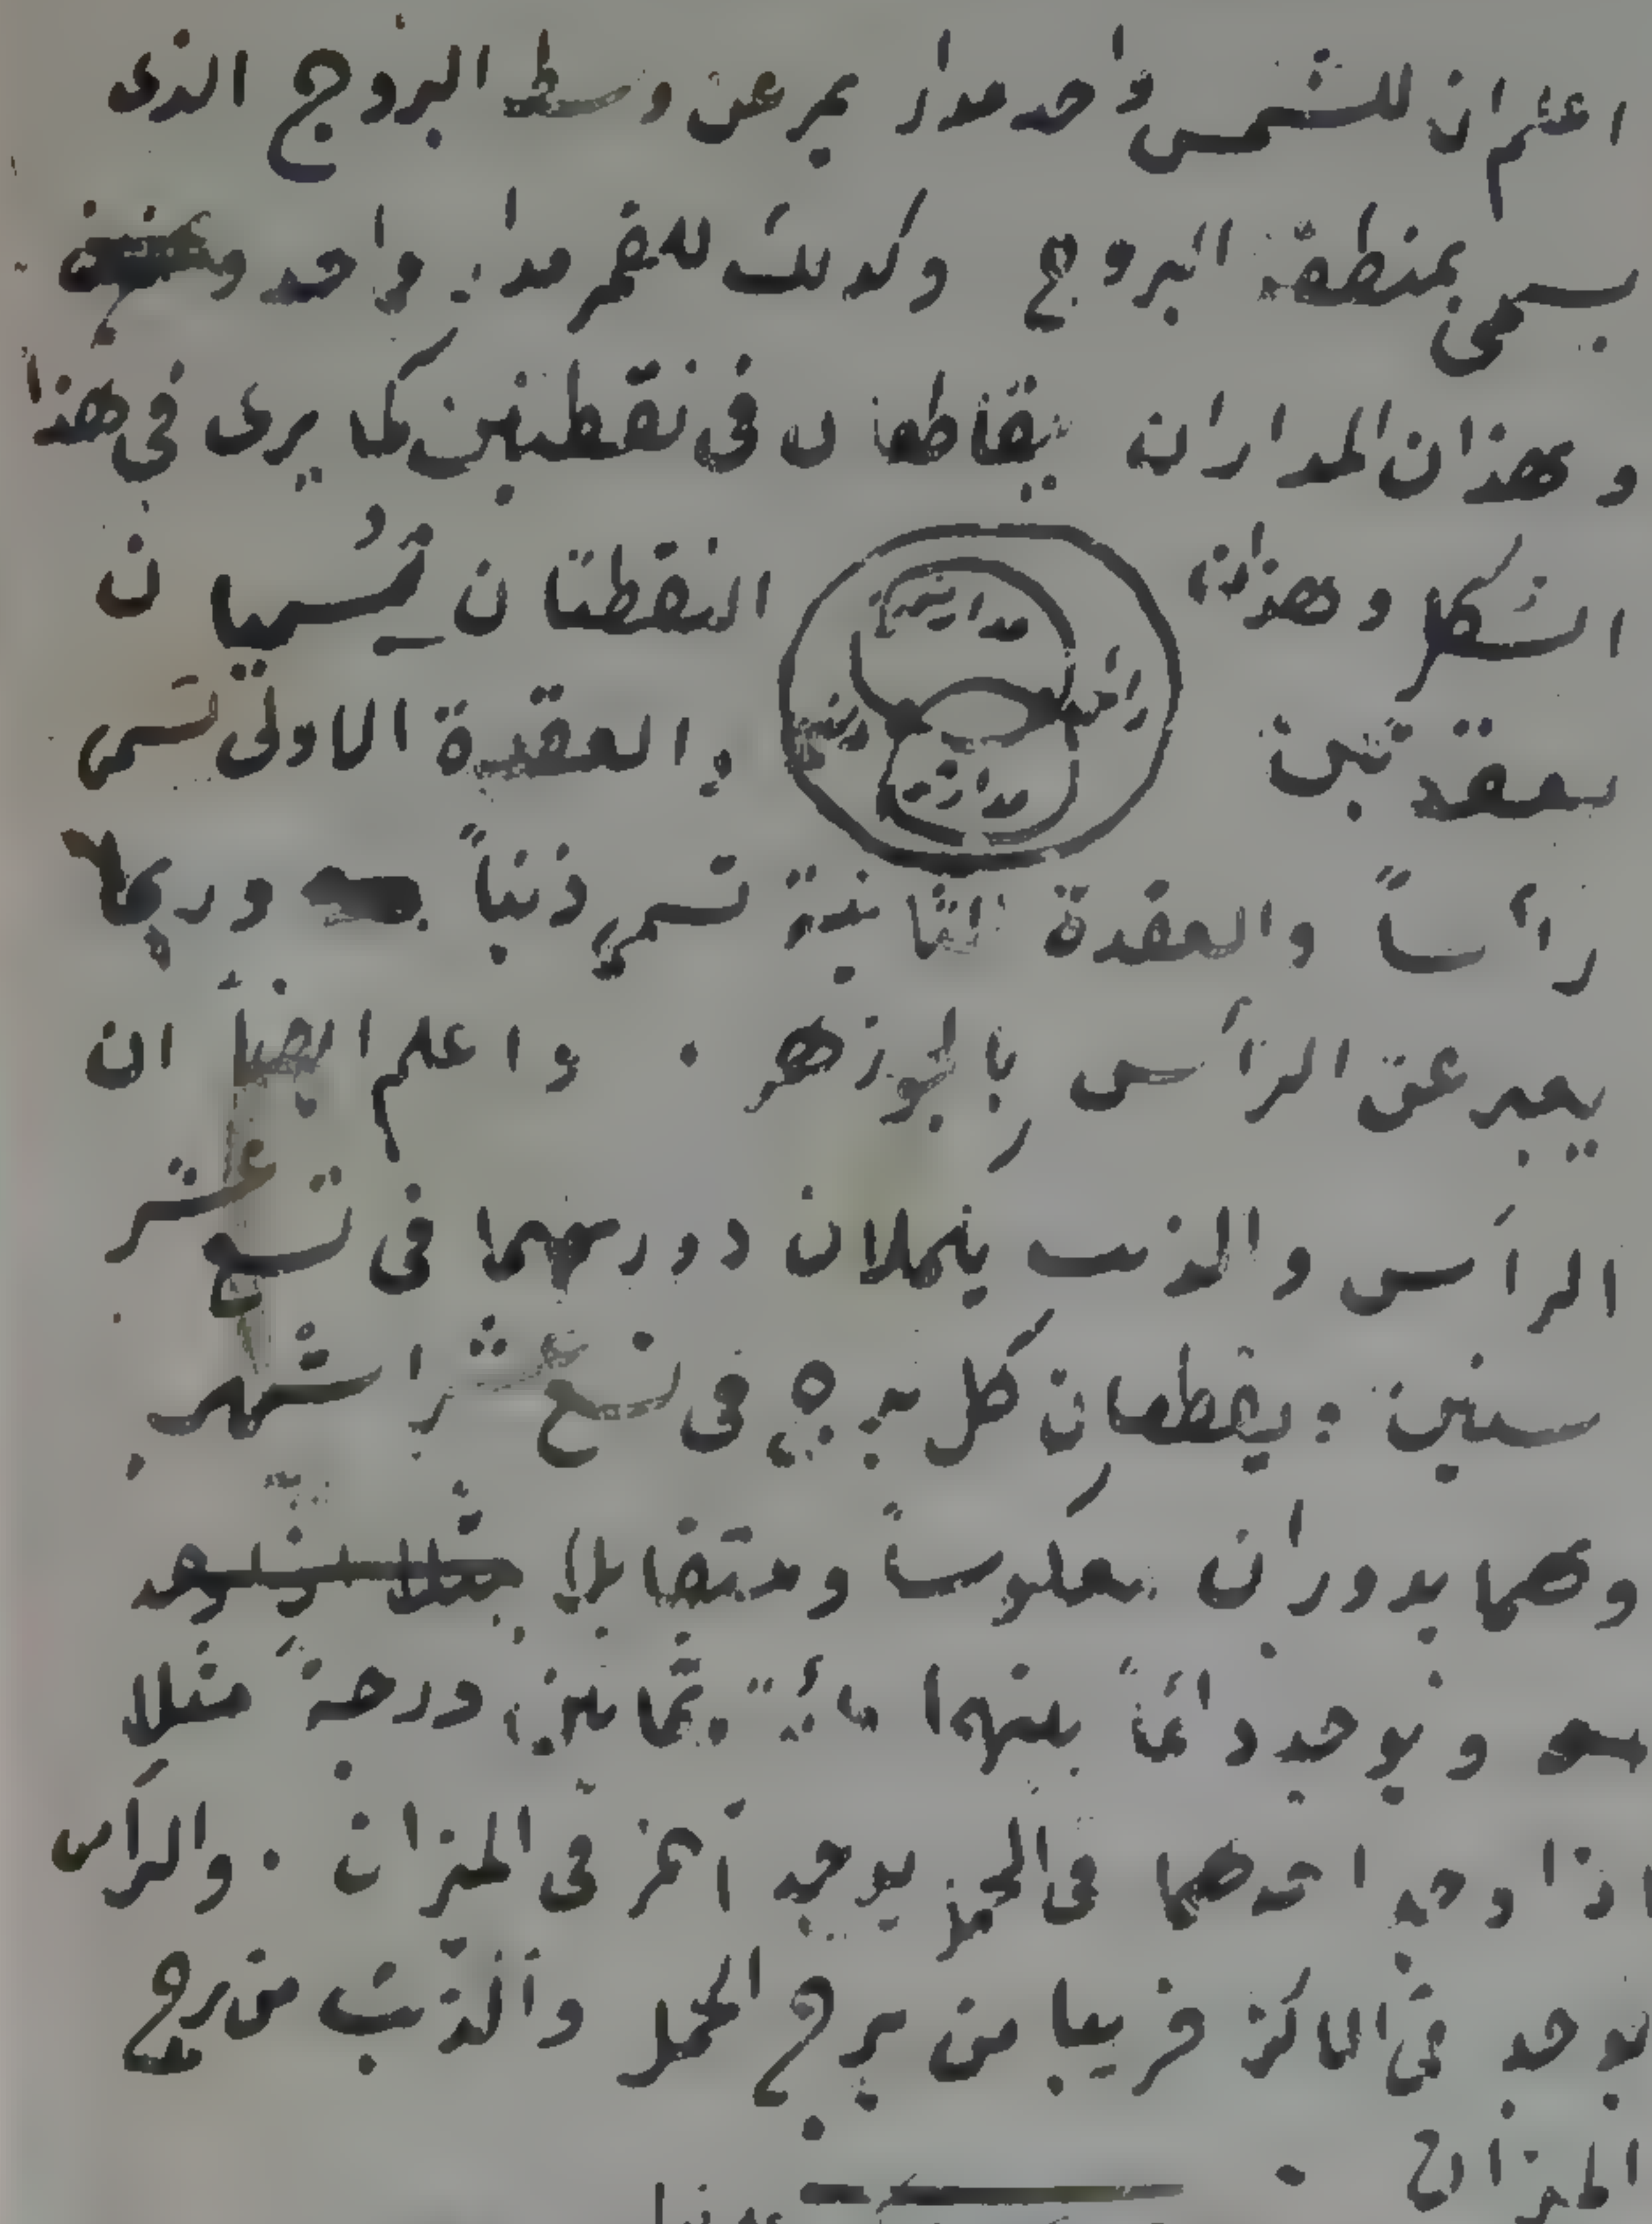 اعلم ان للشمس واحد مدار يمر عن وسط البروج الذى
يسمى بمنطقة البروج وكذلك للقمر مدار واحد
وهذان المداران يقاطعان فى نقطتين كما يرى فى هذا
الشكل وهذان النقطتان تُسميان
بعقدتين والعقيدة الاولى تسمى
رأساً والعقدة الثانية تسمى ذنباً وربما
يعبر عن الرأس بالجوزهر . واعلم ايضاً ان
الرأس والذنب يكملان دورتهما فى تسع عشر
سنين ويقطعان كل برج فى تسع عشر اشهر
وهما يدوران معكوساً ومتقابلا
ويوجد دائماً بينهما مأية وثمانين درجة مثلاً
اذا وجد احدهما فى الحمل يوجد آخر فى الميزان . والرأس
يوجد فى الاكثر قريبا من برج الحمل والذنب من برج
الميزان .